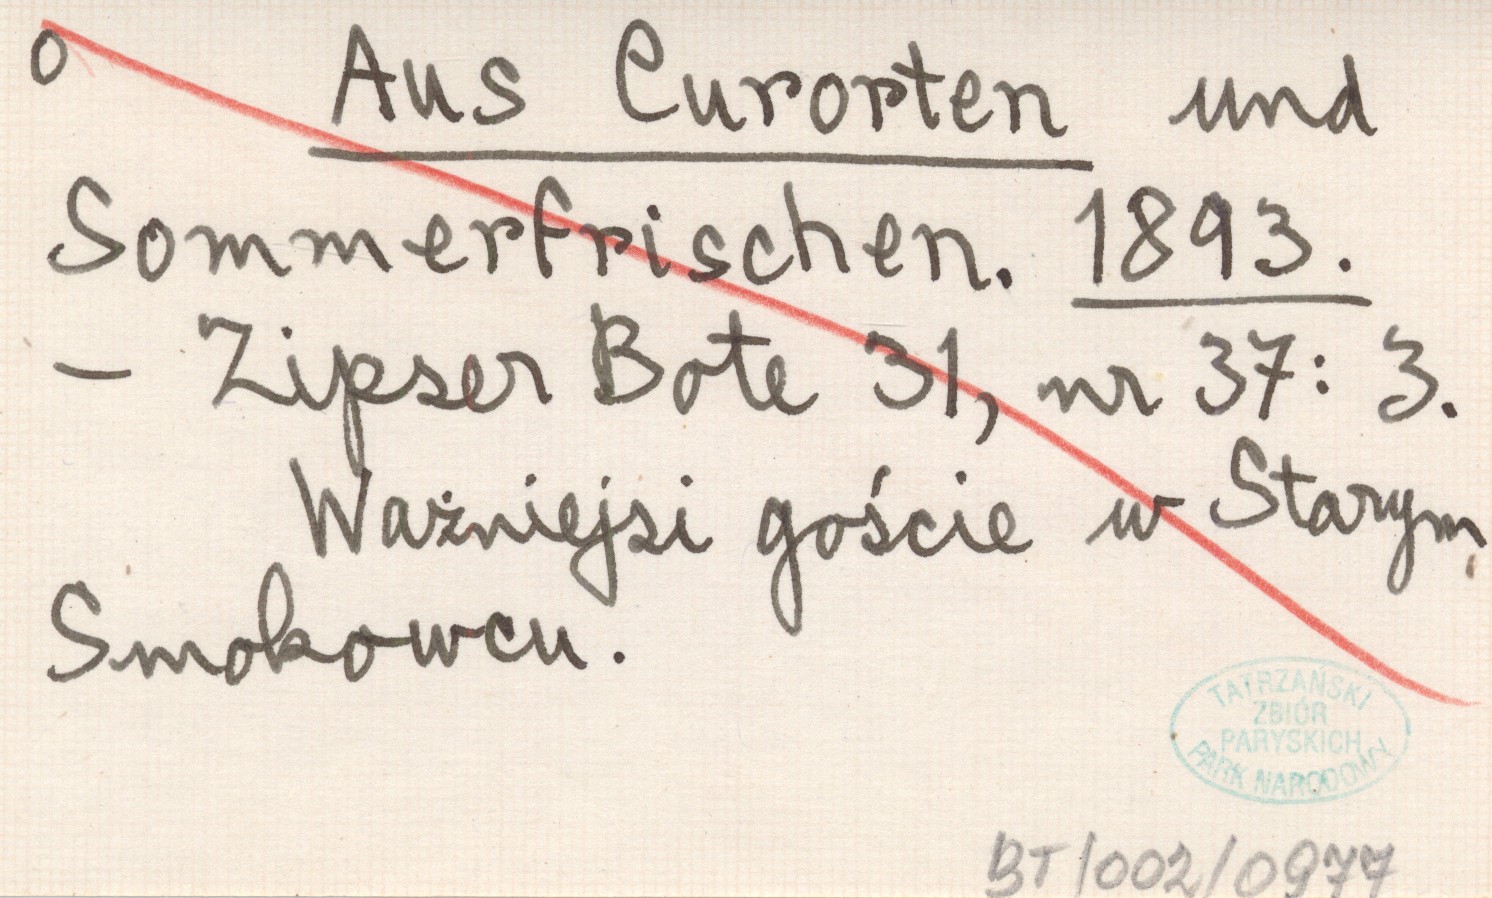 o Aus Curorten und
Sommerfrischen. 1893.
- Zipser Bote 31, nr 37: 3.
Ważniejsi goście w Starym
Smokowcu.
TATRZAŃSKI
ZBIÓR
PARYSKICH
PARK NARODOWY
BT/002/0977